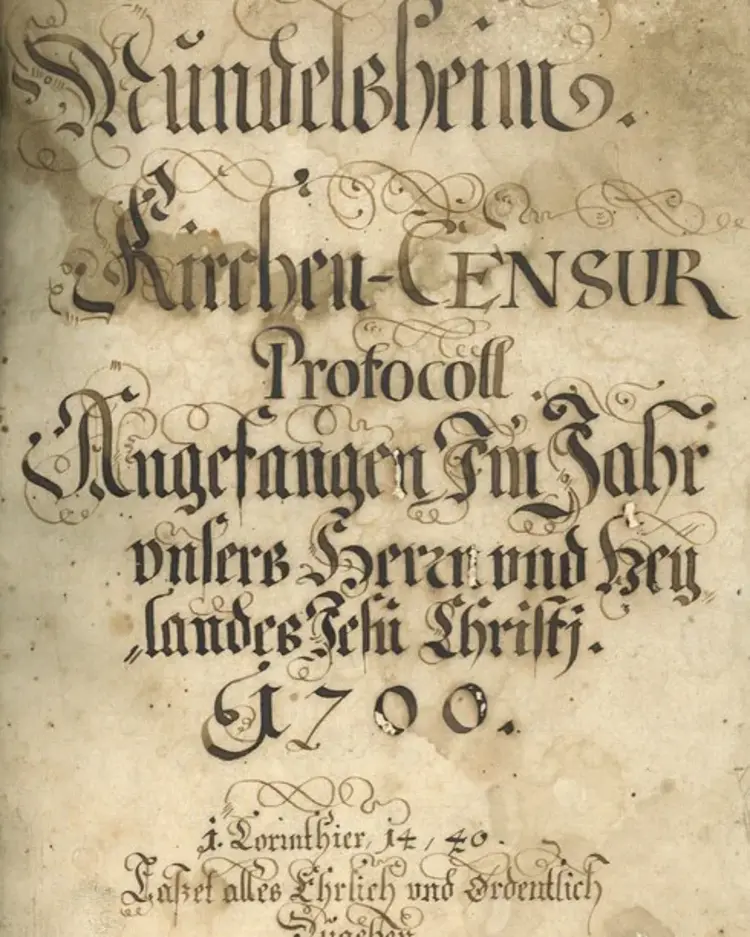 Mündelsheim.
Kirchen-CENSUR
Protocoll
Angefangen Im Jahr
vnsers Herrn vnd Hey
„landes Jesü Christj.
1700.
1. Corinthier, 14, 40.
Laßet alles Ehrlich vnd Ordentlich
Zügehen